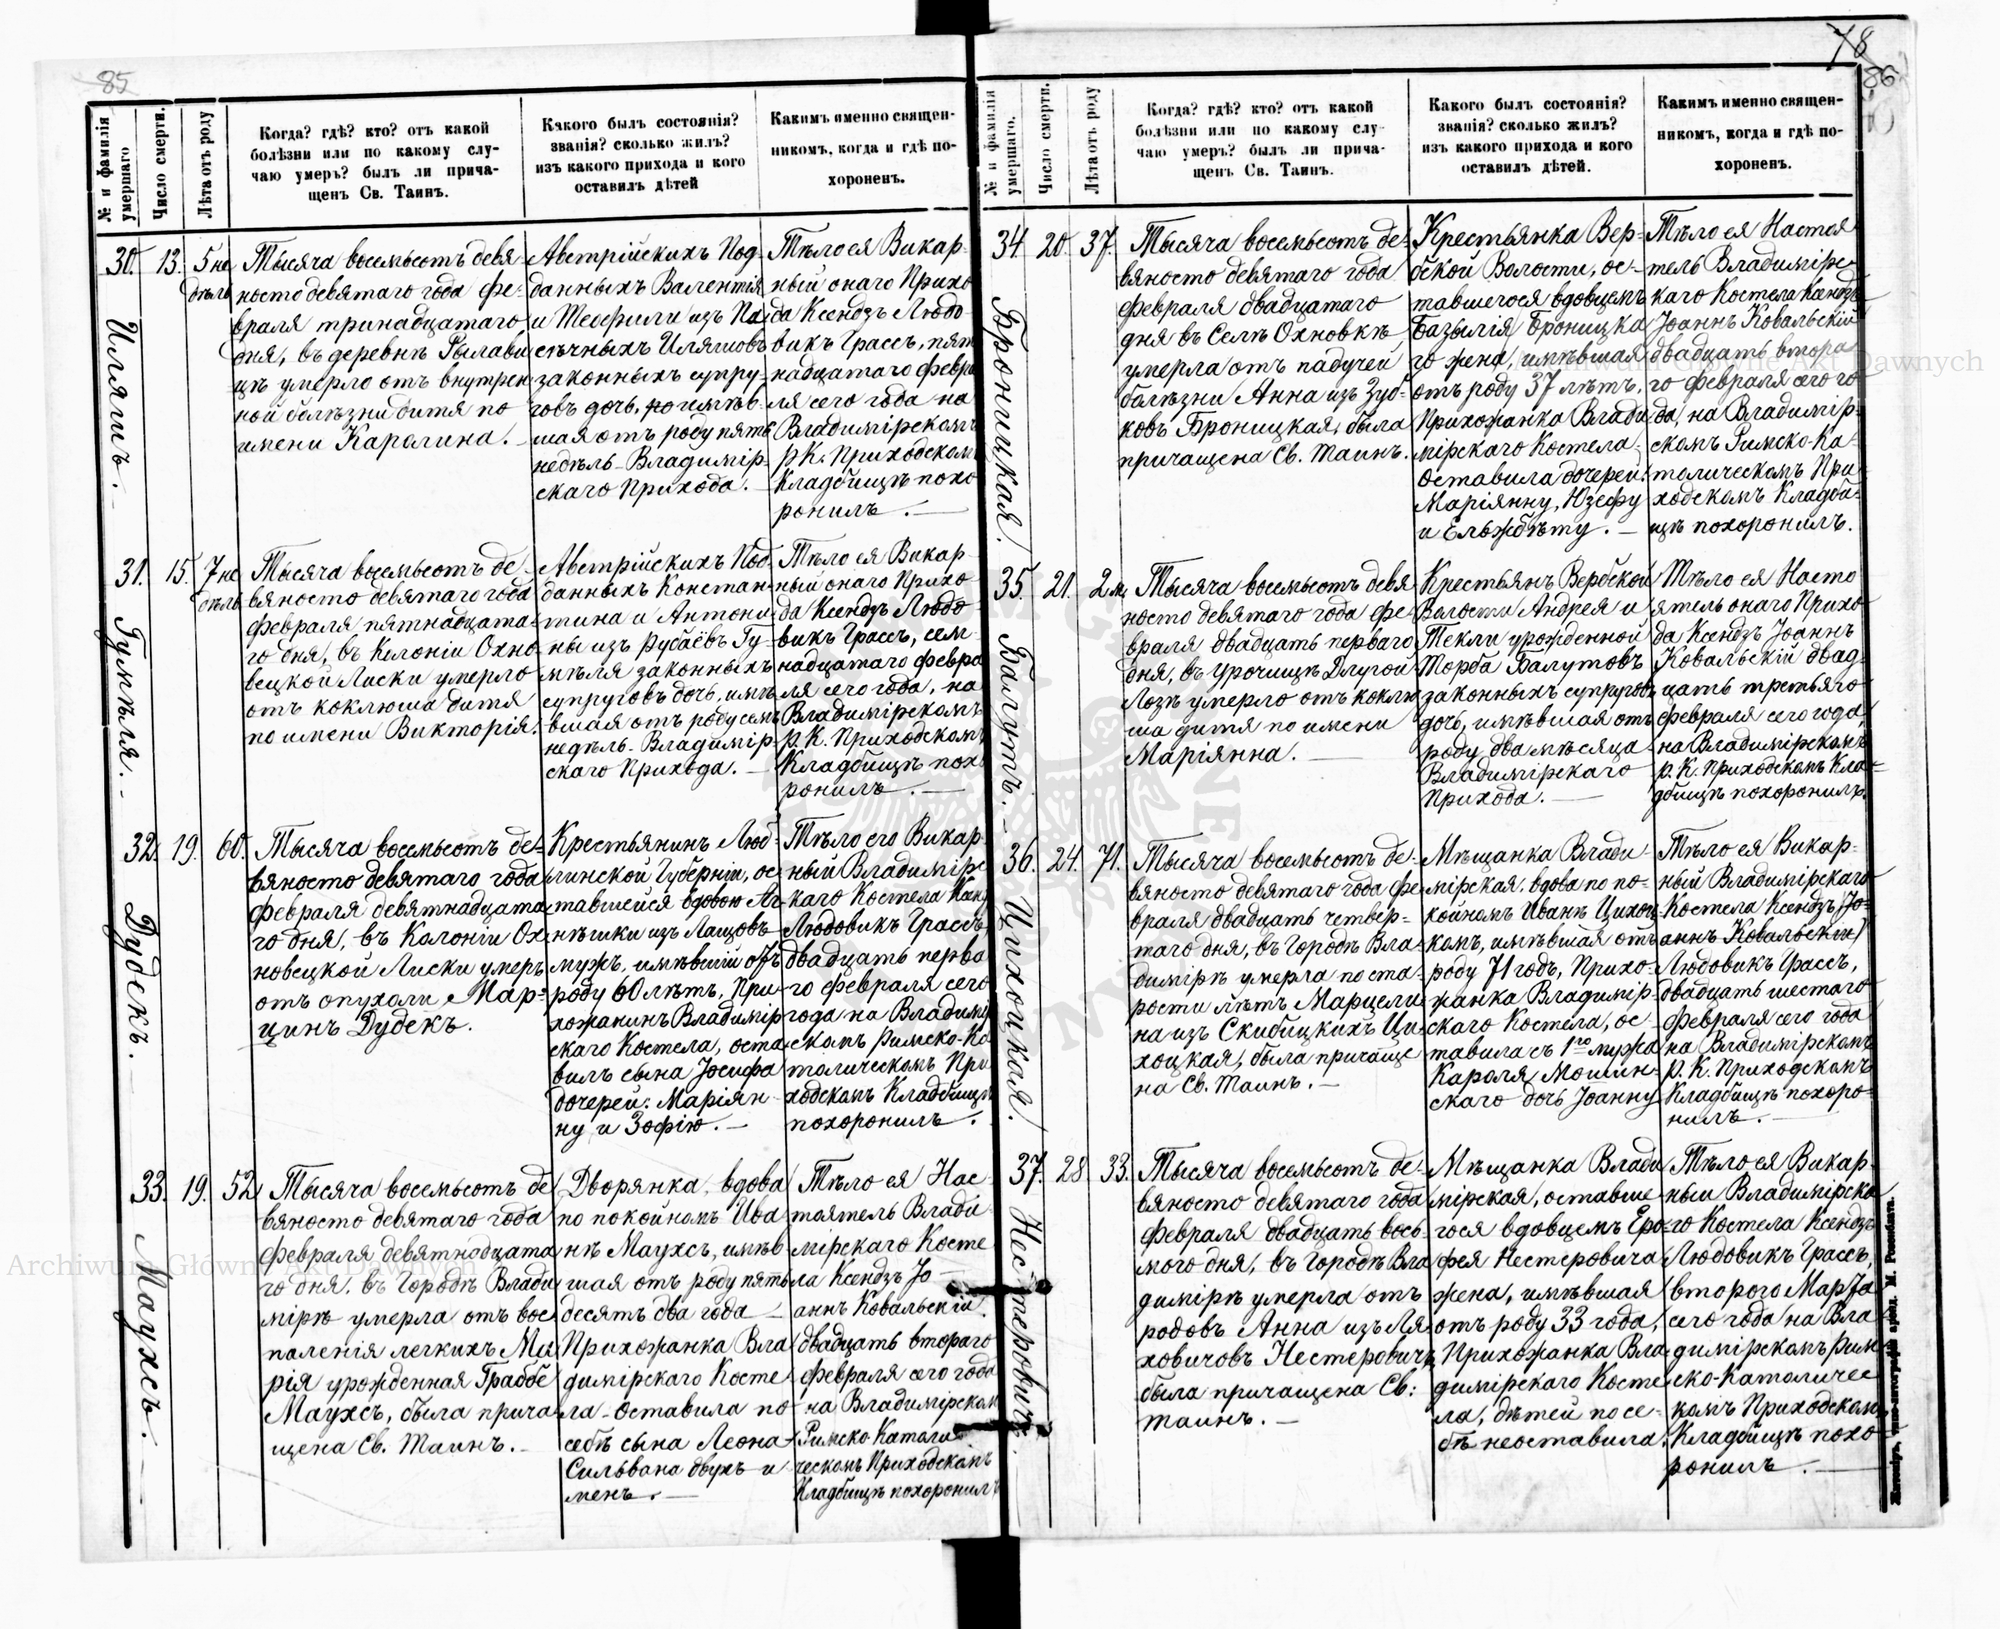 85
№ и фамилія умершаго
Число смерти.
Лѣта отъ роду
Когда? гдѣ? кто? отъ какой
болѣзни или по какому слу-
чаю умеръ? былъ ли прича-
щенъ Св. Таинъ.
Какого былъ состоянія?
званія? сколько жилъ?
изъ какого прихода и кого
оставилъ дѣтей
Какимъ именно священ-
никомъ, когда и гдѣ по-
хороненъ.
30. Иляшъ.
13.
5 не
дѣль
Тысяча восемьсотъ девя
носто девятаго года фе-
враля тринадцатаго
дня, въ деревнѣ Рылави
цѣ умерло отъ внутрен
ной болѣзни дитя по
имени Каролина.
Австрійскихъ Под-
данныхъ Валентія
и Теофили изъ
законныхъ супру-
говъ дочь, имѣв-
шая отъ роду пять
недѣль - Владимір-
скаго Прихода.
Тѣло ея Викар-
ный онаго Прихо
да Ксендзъ Людо-
викъ Грассъ, пят
надцатаго февра
ля сего года на
Владимірскомъ
р. К. Приходском
Кладбищѣ похо
ронилъ.
31. Гумѣля.
15.
7 не
дѣль
Тысяча восемьсотъ де-
вяносто девятаго года
февраля пятнадцата-
го дня, въ Колоніи Охно
вецкой Лиски умерло
отъ коклюша дитя
по имени Викторія.
Австрійскихъ Под-
данныхъ Констан-
тина и Антони
ны изъ Рубаёвъ Гу-
мѣля законныхъ
супруговъ дочь, имѣ
вшая отъ роду семь
недѣль - Владимір-
скаго Прихода.
Тѣло ея Викар-
ный онаго Прихо
да Ксендзъ Людо
викъ Грассъ, сем-
надцатаго февра
ля сего года, на
Владимірскомъ
р. К. Приходскомъ
Кладбищѣ похо
ронилъ.
32. Дудекъ.
19.
60.
Тысяча восемьсотъ де-
вяносто девятаго года
февраля девятнадцата
го дня, въ Колоніи Ох-
новецкой Лиски умеръ
отъ опухоли Мар-
цинъ Дудекъ.
Крестьянинъ Люб-
линской Губерніи, ос-
тавшейся вдовою Аг-
нѣшки изъ Лащовъ
мужъ, имѣвшій отъ
роду 60 лѣтъ, При-
хожанинъ Владимір
скаго Костела, оста
вилъ сына Іосифа
дочерей: Маріян-
ну и Зофію.
Тѣло его Викар-
ный Владимірс
каго Костела
Людовикъ Грассъ
двадцать перва
го февраля сего
года на Владимі
скомъ Римско-Ка
толическомъ При
ходскомъ Кладбищѣ
похоронилъ.
33. Маухсъ.
19.
52
Тысяча восемьсотъ де
вяносто девятаго года
февраля девятнадцата
го дня, въ Городѣ Влади
мірѣ умерла отъ вос
паленія легкихъ Ма
рія урожденная Граббе
Маухсъ, была прича-
щена Св. Таинъ.
Дворянка, вдова
по покойномъ Ива
нѣ Маухсъ, имѣв
шая отъ роду пять
десятъ два года
Прихожанка Вла
димірскаго Косте
ла - оставила по
себѣ сына Леона
Сильвана двухъ и
менъ.
Тѣло ея Нас-
тоятель Влади-
мірскаго Косте
ла Ксендзъ Іо-
аннъ Ковальскій
двадцать втораго
февраля сего года
на Владимірском
Римско-Католи
ческомъ Приходскомъ
Кладбищѣ похоронилъ
78
86
№ и фамилія умершаго.
Число смерти.
Лѣта отъ роду
Когда? гдѣ? кто? отъ какой
болѣзни или по какому слу-
чаю умеръ? былъ ли прича-
щенъ Св. Таинъ.
Какого былъ состоянія?
званія? сколько жилъ?
изъ какого прихода и кого
оставилъ дѣтей.
Какимъ именно священ-
никомъ, когда и гдѣ по-
хороненъ.
34. Броницкая.
20.
37.
Тысяча восемьсотъ де-
вяносто девятаго года
февраля двадцатаго
дня въ Селѣ Охновкѣ
умерла отъ падучей
болѣзни Анна изъ Зуб-
ковъ Броницкая, была
причащена Св. Таинъ.
Крестьянка Вер-
бской Волости, ос-
тавшегося вдовцемъ
Базылія Броницка
го жена, имѣвшая
отъ роду 37 лѣтъ,
Прихожанка Влади
мірскаго Костела
Оставила дочерей:
Маріянну, Юзефу
и Ельжбѣту.
Тѣло ея Настоя
тель Владимірс-
каго Костела
Іоаннъ Ковальскій
двадцать втора
го февраля сего го
да, на Владимір-
скомъ Римско-Ка-
толическомъ При-
ходскомъ Кладби-
щѣ похоронилъ.
35. Балутъ.
21.
2 м.
Тысяча восемьсотъ девя
носто девятаго года фе-
враля двадцать перваго
дня, въ урочищѣ Длугой
Лозѣ умерло отъ коклю
ша дитя по имени
Маріянна.
Крестьянъ Вербской
Волости Андрея и
Текли урожденной
Торба Балутовъ
законныхъ супруговъ
дочь, имѣвшая отъ
роду два мѣсяца
Владимірскаго
Прихода.
Тѣло ея Насто
ятель онаго Прихо-
да Ксендзъ Іоаннъ
Ковальскій двад-
цать третьяго
февраля сего года,
на Владимірскомъ
р. К. Приходскомъ Кла-
дбищѣ похоронилъ.
36. Цихоцкая.
24.
71.
Тысяча восемьсотъ де-
вяносто девятаго года фе
враля двадцать четвер-
таго дня, въ Городѣ Вла-
димірѣ умерла по ста-
рости лѣтъ Марцели
на изъ Скибицкихъ Ци-
хоцкая, была причаще
на Св. Таинъ.
Мѣщанка Влади-
мірская, вдова по по-
койномъ Иванѣ Цихоц
комъ, имѣвшая отъ
роду 71 годъ, Прихо-
жанка Владимір-
скаго Костела, ос-
тавила съ 1го мужа
Кароля
скаго дочь Іоанну
Тѣло ея Викар-
ный Владимірскаго
Костела Ксендзъ (Іо-
аннъ Ковальскій)
Людовикъ Грассъ,
двадцать шестаго
февраля сего года
на Владимірскомъ
р. К. Приходскомъ
Кладбищѣ похоро-
нилъ.
37. Нестеровичъ
28
33.
Тысяча восемьсотъ де-
вяносто девятаго года
февраля двадцать вось-
мого дня, въ Городѣ Вла
димірѣ умерла отъ
родовъ Анна изъ Ля
ховичовъ Нестеровичъ
была причащена Св:
Таинъ.
Мѣщанка Влади
мірская, оставше
гося вдовцемъ Еро-
фея Нестеровича
жена, имѣвшая
отъ роду 33 года,
Прихожанка Вла
димірскаго Косте
ла, дѣтей по се-
бѣ неоставила.
Тѣло ея Викар-
ный Владимірска
го Костела Ксендзъ
Людовикъ Грассъ,
второго Марта
сего года на Вла
димірскомъ Рим
ско-Католичес
комъ Приходскомъ
Кладбищѣ похо-
ронилъ.
Житоміръ, типо-литографія аренд. М. Розенблата.
Archiwum Główne Akt Dawnych
Archiwum Główne Akt Dawnych